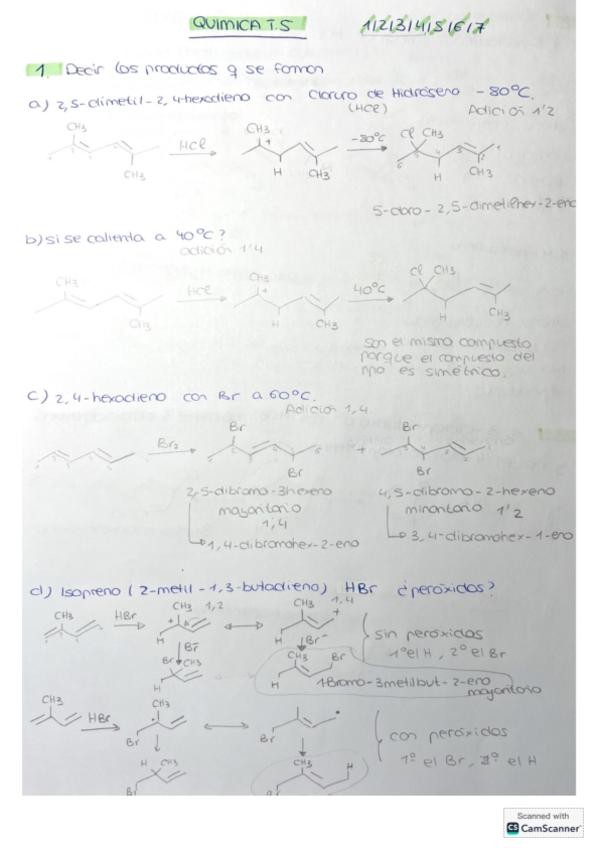 QUIMICA T.5 1/2/3/4/5/6/7
1. Decir los productos q se forman
a) 2,5-dimetil-2,4-hexadieno con Cloruro de Hidrógeno -80ºC.
(HCl) Adición 1'2
CH3 HCl CH3 + -80ºC Cl CH3
CH3 H CH3 H CH3
5-cloro-2,5-dimetilhex-2-eno
b) si se calienta a 40ºC?
adición 1'4
CH3 HCl CH3 + 40ºC Cl CH3
CH3 H CH3 H CH3
son el mismo compuesto
porque el compuesto del
npo es simétrico.
c) 2,4-hexadieno con Br a 60ºC.
Adición 1,4
Br2 Br + Br
Br Br
2,5-dibromo-3hexeno 4,5-dibromo-2-hexeno
mayoritorio minoritorio 1'2
1,4
1,4-dibromohex-2-eno 3,4-dibromohex-1-eno
d) Isopreno (2-metil-1,3-butadieno) HBr ¿peróxidos?
CH3 HBr CH3 1,2 CH3 1,4 +
H Br- H Br-
sin peróxidos
1º el H, 2º el Br
Br CH3 CH3 Br
H H
1Bromo-3metilbut-2-eno
mayoritorio
CH3 HBr CH3
Br Br
con peróxidos
1º el Br, 2º el H
H CH3 CH3 H
Br
Scanned with
CS CamScanner